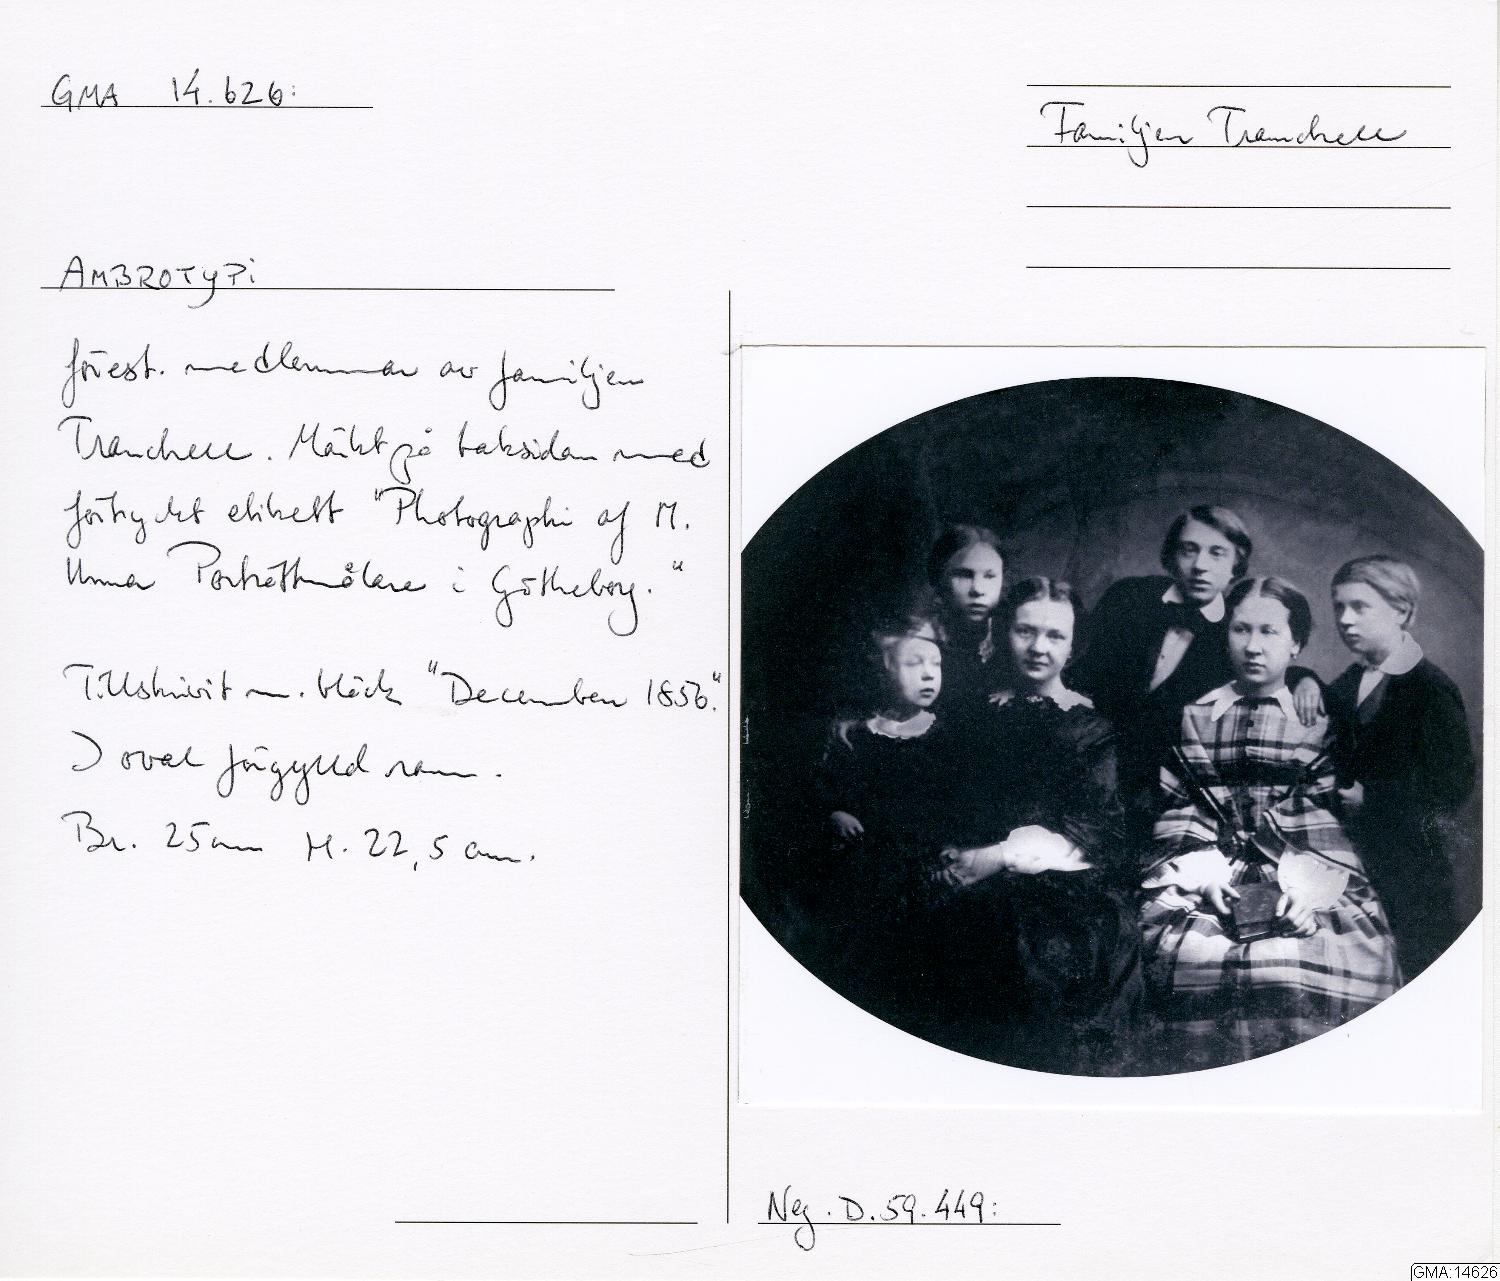 GMA 14.626:
Familjen Tranchell
AMBROTYPI
förest. medlemmar av familjen
Tranchell. Märkt på baksidan med
förtryckt etikett "Photographi af M.
Unna Porträttmålare i Götheborg."
Tillskrivit m. bläck "December 1856."
I oval förgylld ram.
Br. 25 cm H. 22,5 cm.
Neg. D.59.449:
GMA:14626